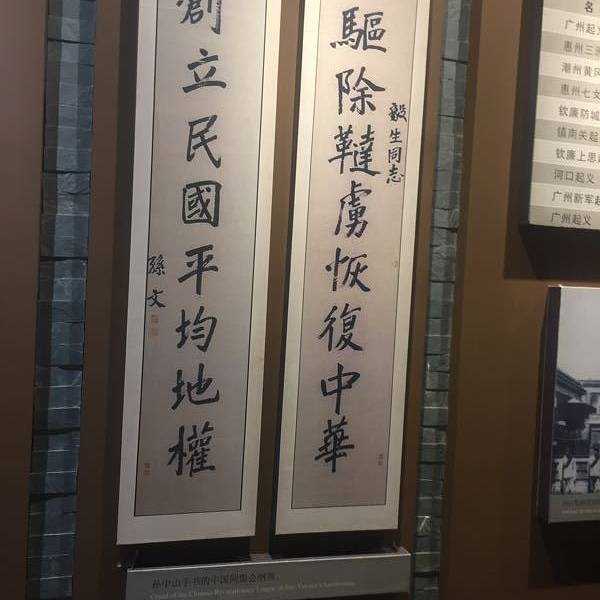 驅除韃虜恢復中華
毅生同志
創立民國平均地權
孫文
孙中山手书的中国同盟会纲领
名
广州起义
惠州三洲
潮州黄冈
惠州七女
钦廉防城
镇南关起
钦廉上思
河口起义
广州新军起
广州起义